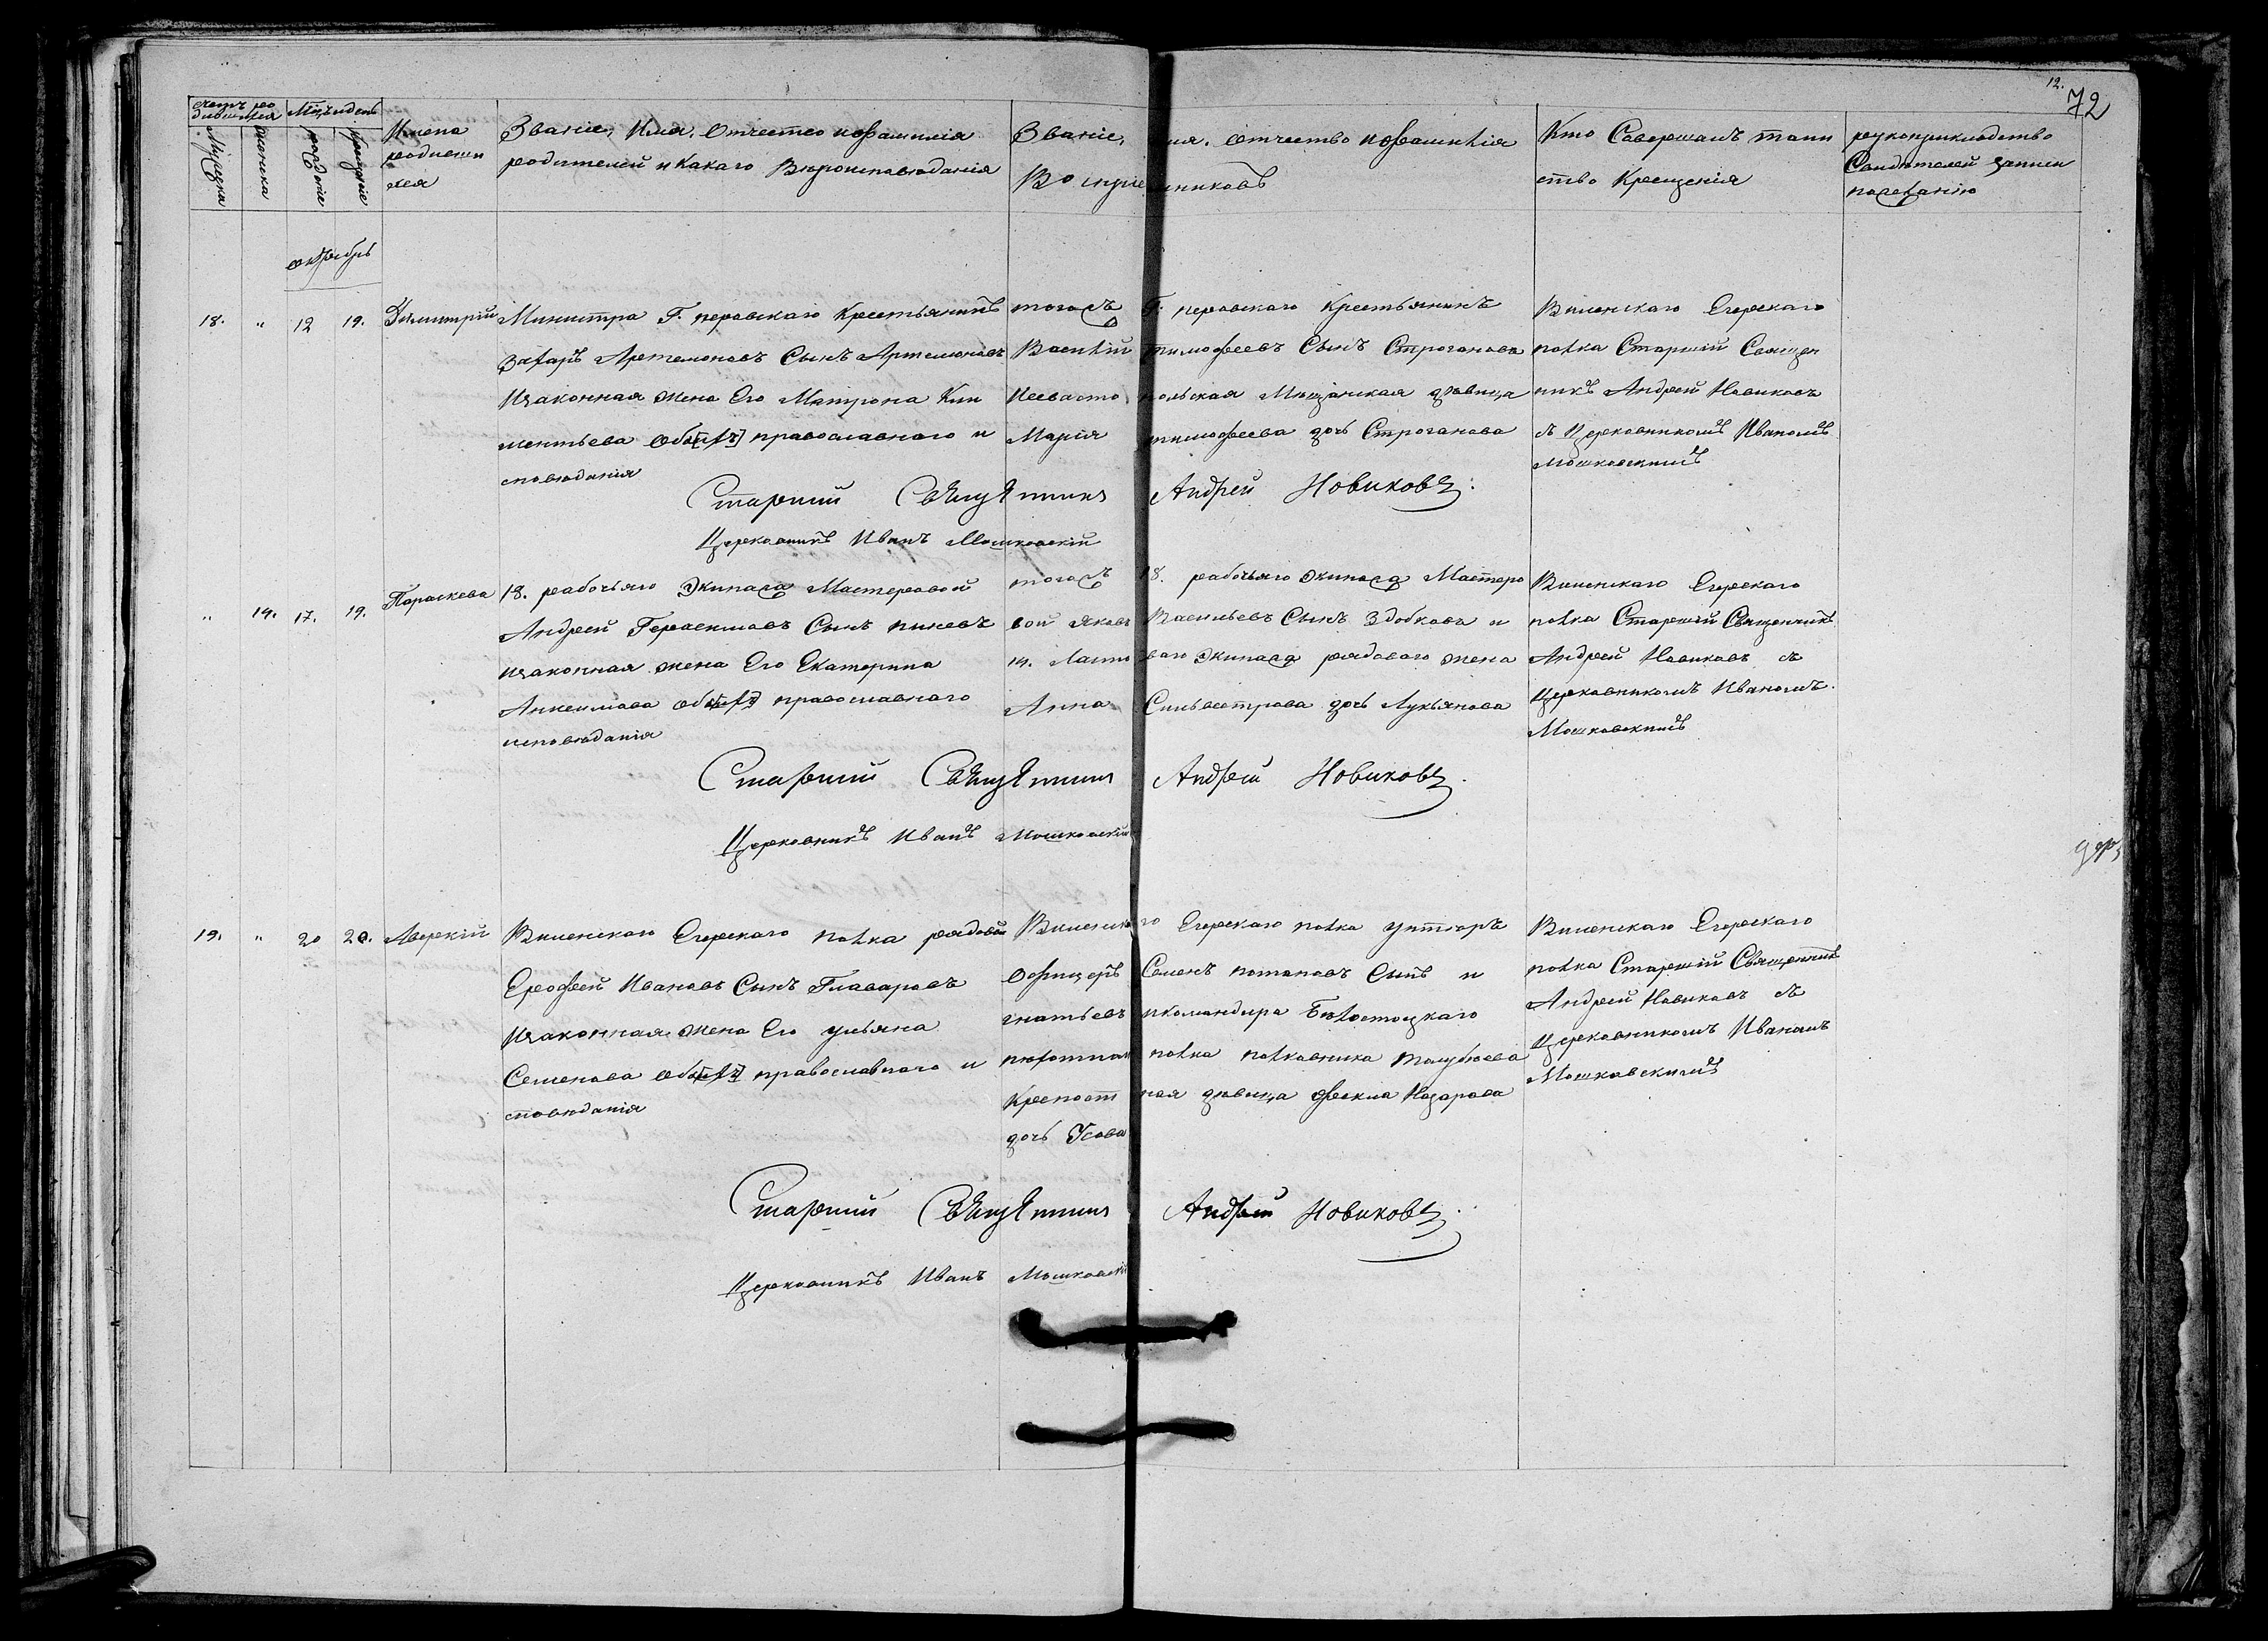 12.
72
Счетъ ро
дившихся
Мужеска
женска
Мѣсяцъ и день
рожденіе
Крещеніе
Имена
родивши
хся
Званіе, Имя, Отчество и фамилія
родителей и Какаго Вероисповѣданія
Званіе, имя, отчество и фамилія
Воспріемниковъ
Кто Совершалъ таин
ство Крещенія
рукоприкладство
Свидетелей записи
пожеланію
октябрь
18. " 12 19. Димитрій
Министра Г. перовскаго Крестьянинъ
Захаръ Артемоновъ Сынъ Артемоновъ
Изаконная жена Его Матрона Кли
ментьева оба православнаго и
споведанія
тогожъ Г. перовскаго Крестьянинъ
Василій тимофеевъ Сынъ Строгановъ
Исевастопольская Мещанская девица
Марія тимофеева дочь Строганова
Виленскаго Егерскаго
полка Старшій Священ
никъ Андрей Новиковъ
съ Церковникомъ Иваномъ
Мошковскимъ
Старший Священникъ Андрей Новиковъ.
Церковникъ Иванъ Мошковскій
" 14. 17. 19. Параскева
18. рабочьяго Экипажа Мастеровой
Андрей Герасимовъ Сынъ
изаконная жена Его Екатерина
Анксимова оба православнаго
исповеданія
тогожъ 18. рабочьяго экипажа Мастеро
вой Яковъ Васильевъ Сынъ Здобковъ и
Ластоваго Экипажа рядоваго жена
Анна Сильвестрова дочь Лукьянова
Виленскаго Егерскаго
полка Старшій Священникъ
Андрей Новиковъ съ
Церковникомъ Иваномъ
Мошковскимъ
Старший Священникъ Андрей Новиковъ.
Церковникъ Иванъ Мошковскій
19. " 20 20. Аверкій
Виленскаго Егерскаго полка рядовой
Ерофей Ивановъ Сынъ Главаровъ
Изаконная жена Его ульяна
Семенова оба православнаго и
споведанія
Виленскаго Егерскаго полка унтеръ
Офицеръ Семенъ потаповъ Сынъ и
гнатьевъ икомандира Белостоцкаго
пехотнаго полка полковника
Крепостная девица Фекла Назарова
дочь Усова
Виленскаго Егерскаго
полка Старшій Священникъ
Андрей Новиковъ съ
Церковникомъ Иваномъ
Мошковскимъ
Старший Священникъ Андрей Новиковъ.
Церковникъ Иванъ Мошковскій